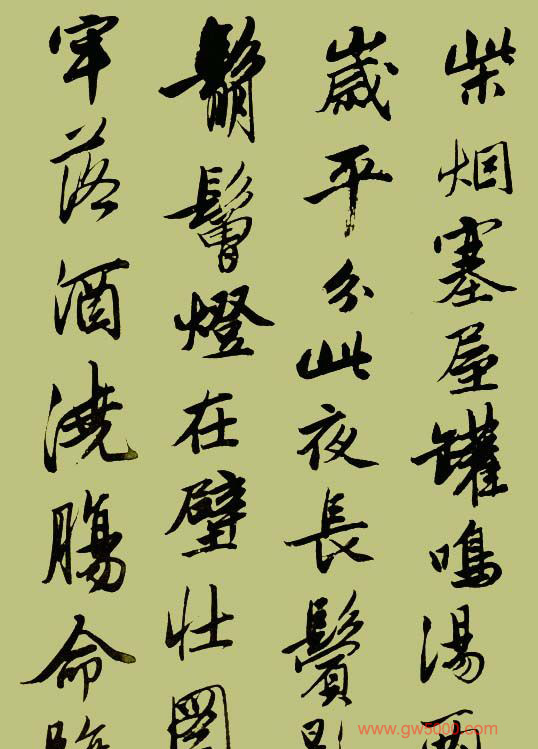 柴烟塞屋罐鳴湯兩
歲平分此夜長鬢影
鬅鬙燈在壁壮圖
牢落酒澆腸命臨
www.gw5000.com